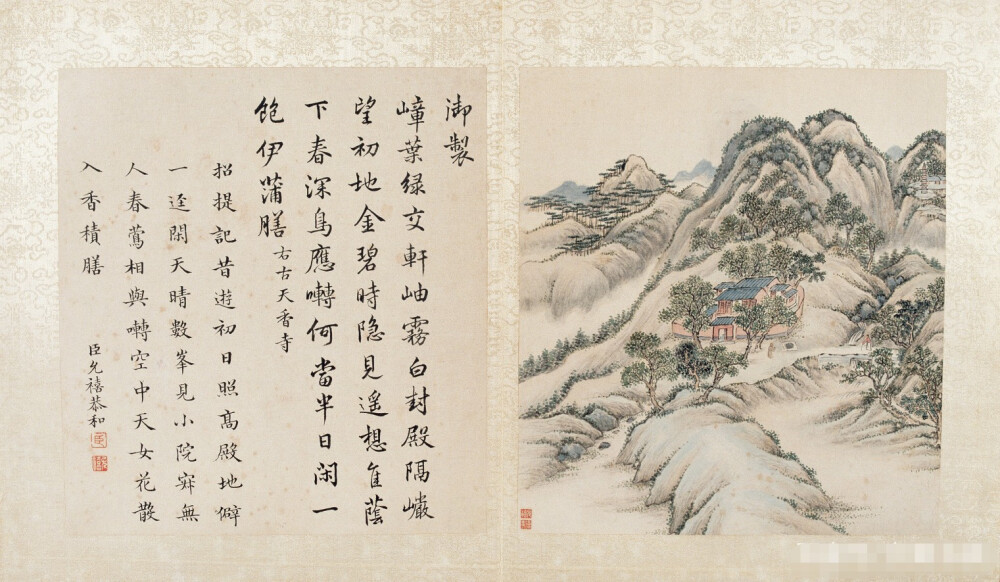 御製
嶂葉綠交軒岫霧白封殿隔巘
望初地金碧時隐見遥想隹蔭
下春深鳥應囀何當半日閑一
飽伊蒲膳右古天香寺
招提記昔遊初日照髙殿地僻
一迳閑天晴數峯見小院寂無
人春鶯相與囀空中天女花散
入香積膳
臣允禧恭和